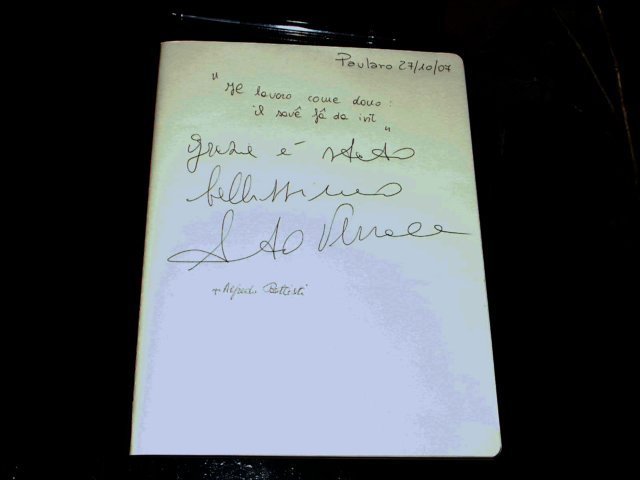 Paularo 27/10/07
"Il lavoro come dono:
il savê fâ da int"
grazie è stato
bellissimo
+ Alfredo Battisti